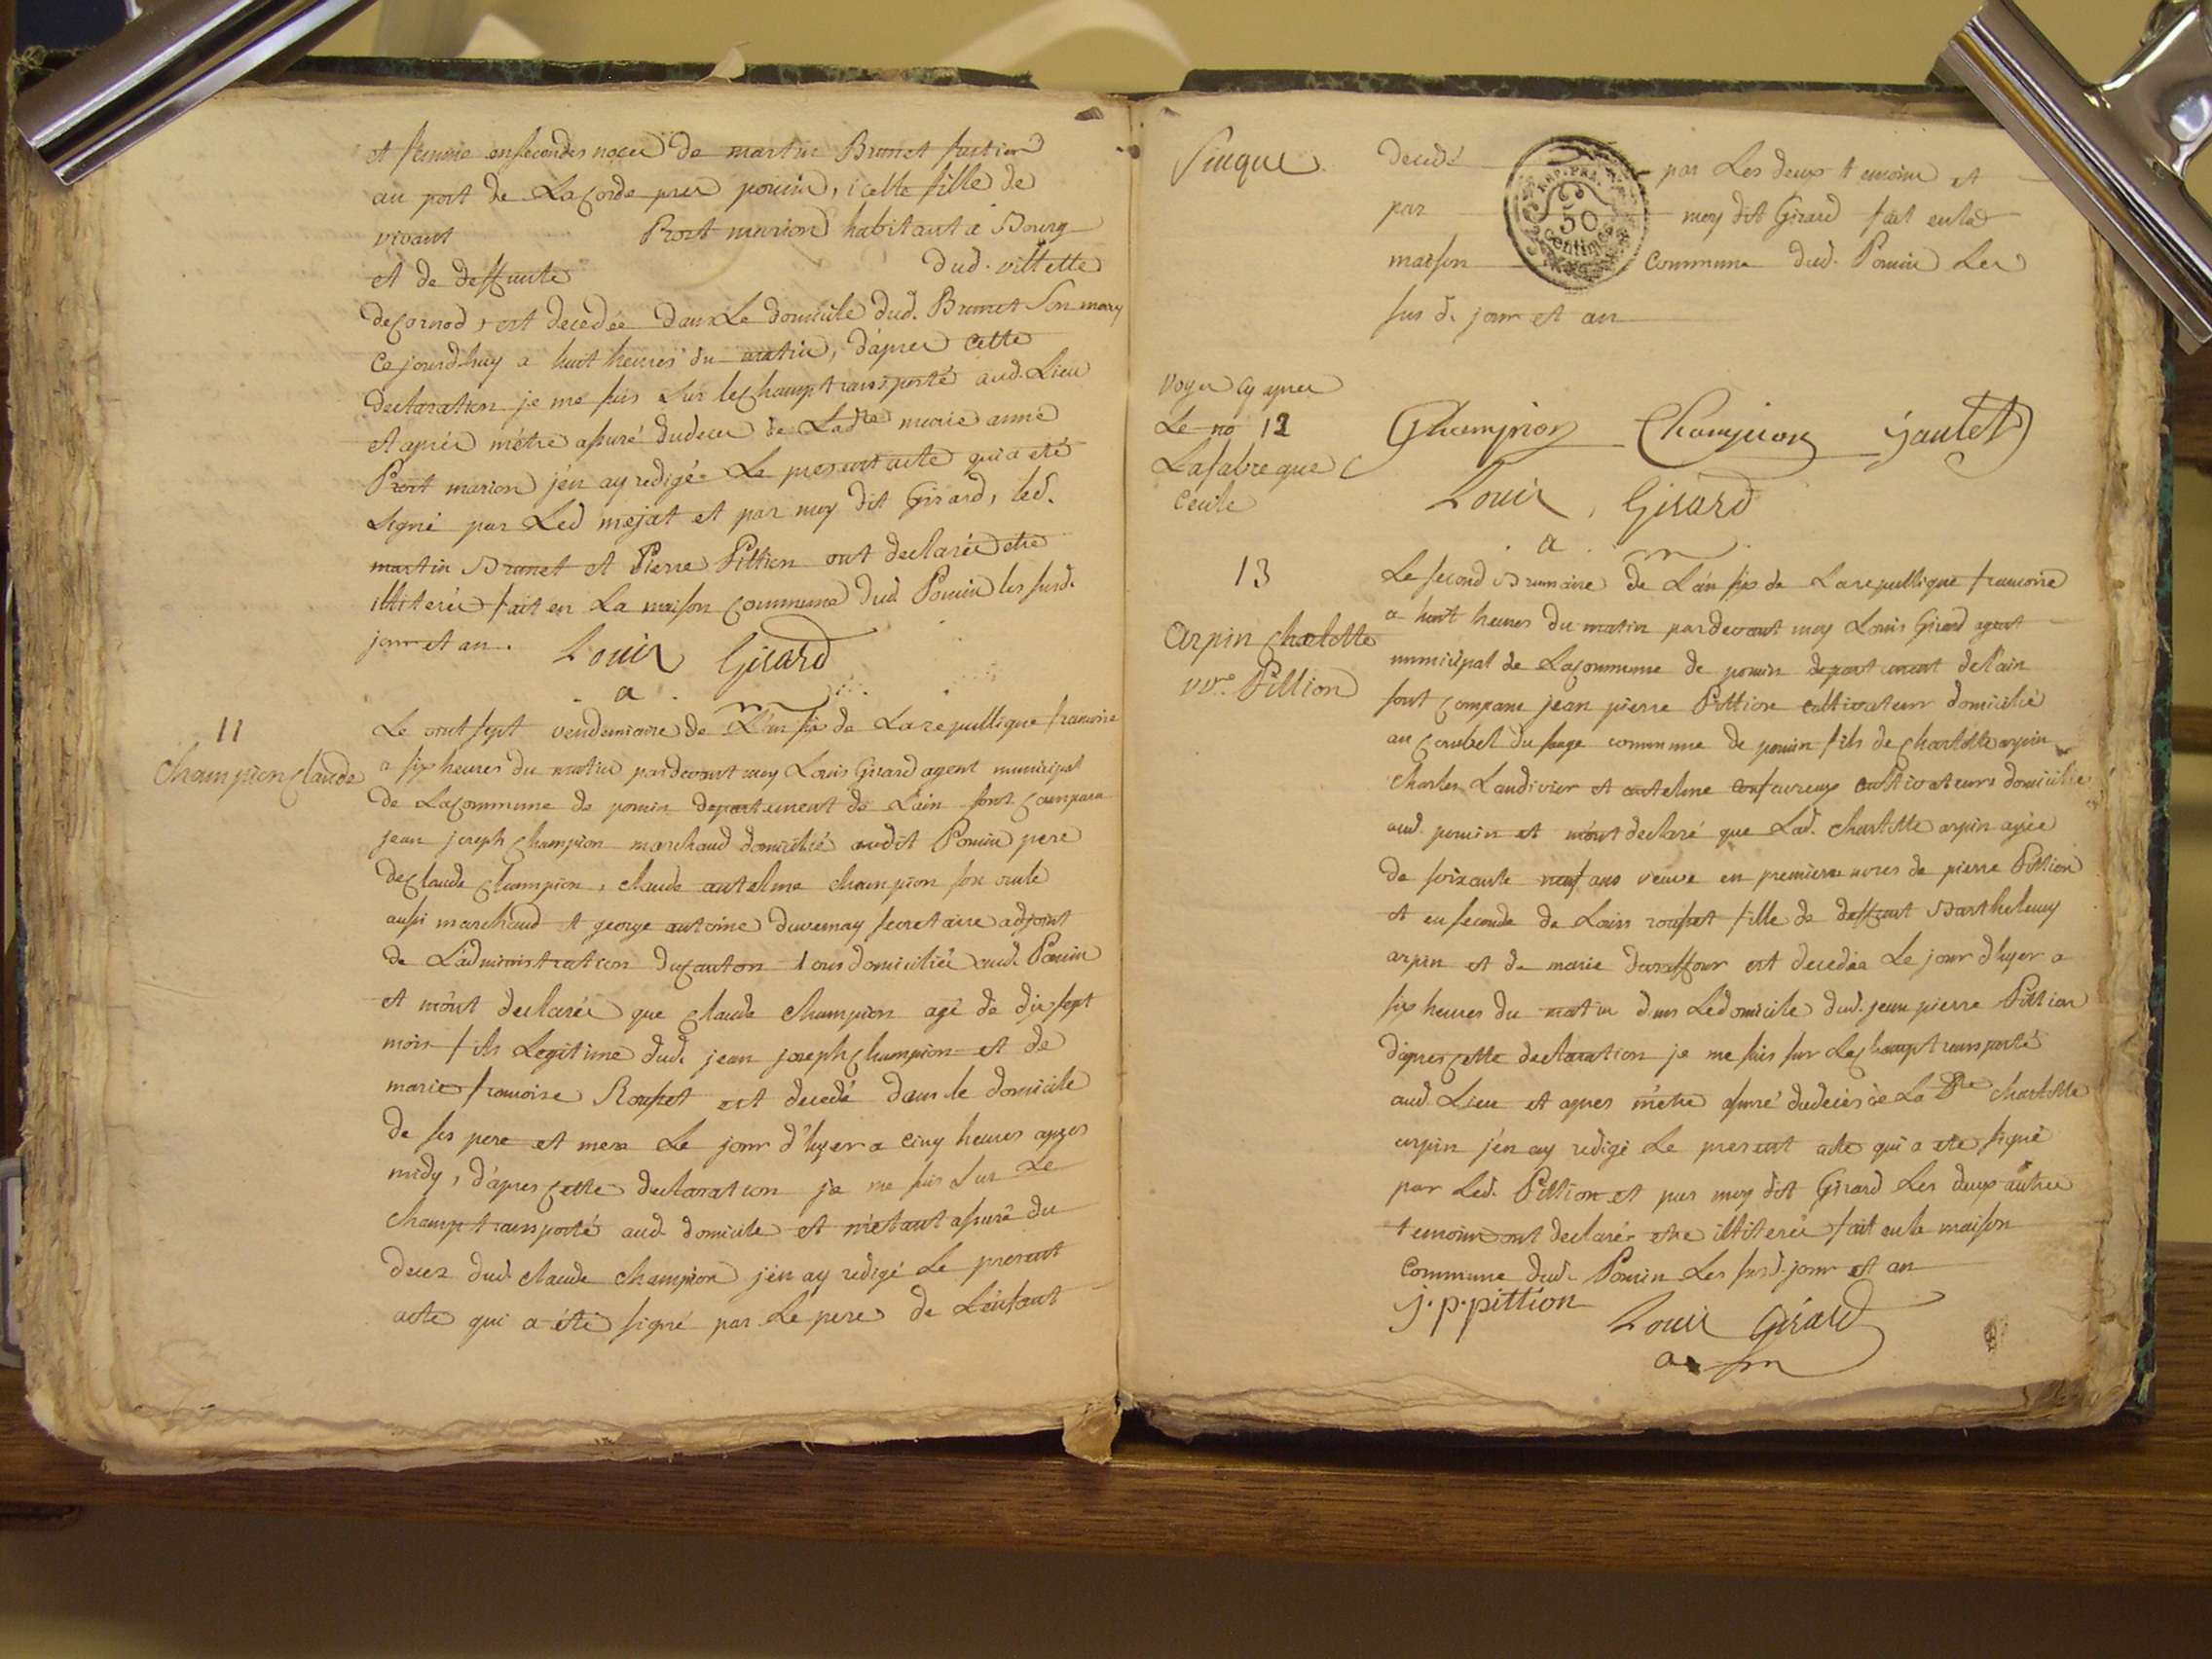 et femme en secondes noces de martin Brunet
au port de La Corde pres poncin, icelle fille de
vivant Prost marion habitant a Bourg
et de deffunte dud. villette
decornod, est decedée dans Le domicile dud. Brunet Son mary
Ce jourdhuy a huit heures du matin, d'apres cette
declaration je me suis Sur le champ transporté aud. Lieu
et apres m'être assuré du deces de Ladte marie anne
Prost marion j'en ay redigé Le present acte qui a été
Signé par Led mejat et par moy dit Girard, led.
martin Brunet et Pierre Pittion ont declarés etre
illiterés fait en La maison Commune dud. Poncin les susd.
jour et an. Louis Girard
a m
11
Champion Claude
Le vendemiaire de L'an six de La republlique francoise
a six heures du matin pardevant moy Louis Girard agent municipal
de La Commune de poncin departement de L'ain sont Compara
jean joseph Champion marchand domicilié audit Poncin pere
de Claude Champion, claude antelme champion son oncle
aussi marchand et george antoine duvernay secretaire adjoint
de L'administration du Canton tous domiciliés aud. Poncin
et m'ont declarés que Claude Champion agé de dix sept
mois fils Legitime dud. jean joseph Champion et de
marie francoise Rouset est decedé dans le domicile
de ses pere et mere Le jour d'hyer a cinq heures apres
midy, d'apres Cette declaration je me suis Sur Le
champ transporté aud. domicile et m'etant assuré du
deces dud. claude champion j'en ay redigé Le present
acte qui a été signé par Le pere de L'enfant
decedé par Les deux temoins et
par moy dit Girard fait en la
maison Commune dud. Poncin Les
sus d. jour et an
REP. FRA.
50
Centimes
Voyer Cy apres
Le no 12
Lafabregue
Cecile
GChampion Champion
Louis Girard
a m
13
Arpin Charlotte
vve Pittion
Le second Brumaire de L'an six de La republlique francoise
a huit heures du matin pardevant moy Louis Girard agent
municipal de La Commune de poncin departement de l'ain
sont Compane jean pierre Pittion Cultivateur domicilié
au commune de poncin fils de Charlotte arpin
Charles Laudivier et antelme Cultivateurs domicilie
aud. poncin et m'ont declaré que Lad. charlotte arpin agée
de soixante neuf ans veuve en premiere noces de pierre Pittion
et en seconde de Louis rouset fille de deffunt Barthelemy
arpin et de marie est decedée Le jour d'hyer a
six heures du matin dans Le domicile dud. jean pierre Pittion
d'apres Cette declaration je me suis sur Le champ transporté
aud. Lieu et apres m'etre assuré du deces de La Dte charlotte
arpin j'en ay redigé Le present acte qui a ete signé
par Led. Pittion et par moy dit Girard Les deux autres
temoins ont declaré etre illiterés fait en la maison
Commune dud. Poncin Les susd. jour et an
j. p. pittion Louis Girard
a m